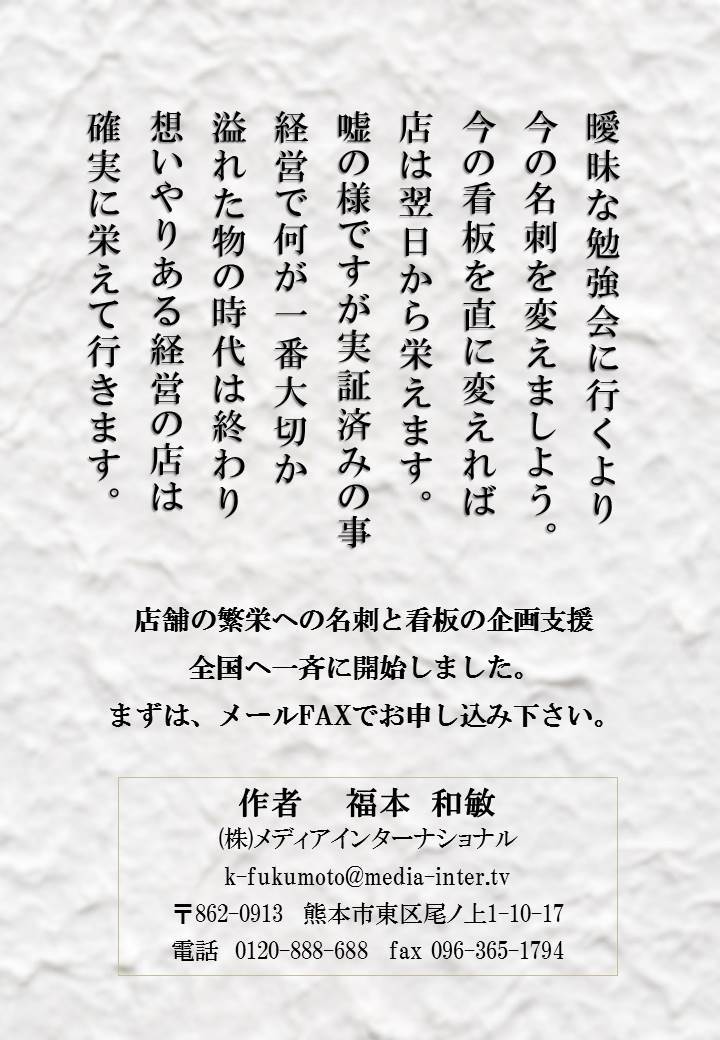 曖昧な勉強会に行くより
今の名刺を変えましよう。
今の看板を直に変えれば
店は翌日から栄えます。
嘘の様ですが実証済みの事
経営で何が一番大切か
溢れた物の時代は終わり
想いやりある経営の店は
確実に栄えて行きます。
店舗の繁栄への名刺と看板の企画支援
全国へ一斉に開始しました。
まずは、メールFAXでお申し込み下さい。
作者　福本 和敏
㈱メディアインターナショナル
k-fukumoto@media-inter.tv
〒862-0913　熊本市東区尾ノ上1-10-17
電話　0120-888-688　fax 096-365-1794